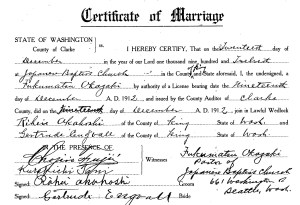 Certificate of Marriage
STATE OF WASHINGTON
County of Clarke
ss.
I HEREBY CERTIFY, That on the Twentieth day of
December in the year of our Lord one thousand nine hundred and Twelve
at Japanese Baptist Church in the County and State aforesaid, I, the undersigned, a
Fukumatsu Okazaki by authority of a License bearing date the Nineteenth
day of December A. D. 1912, and issued by the County Auditor of Clarke
County, did on the day of December A. D. 1912, join in Lawful Wedlock
of the County of King State of Wash.
and Gertrude Engvall of the County of King State of Wash.
IN THE PRESENCE OF
Witnesses
Fukumatsu Okazaki
Pastor of
Japanese Baptist Church
661 Washington
Seattle, Wash.
Signed Groom
Signed Gertrude Engvall Bride